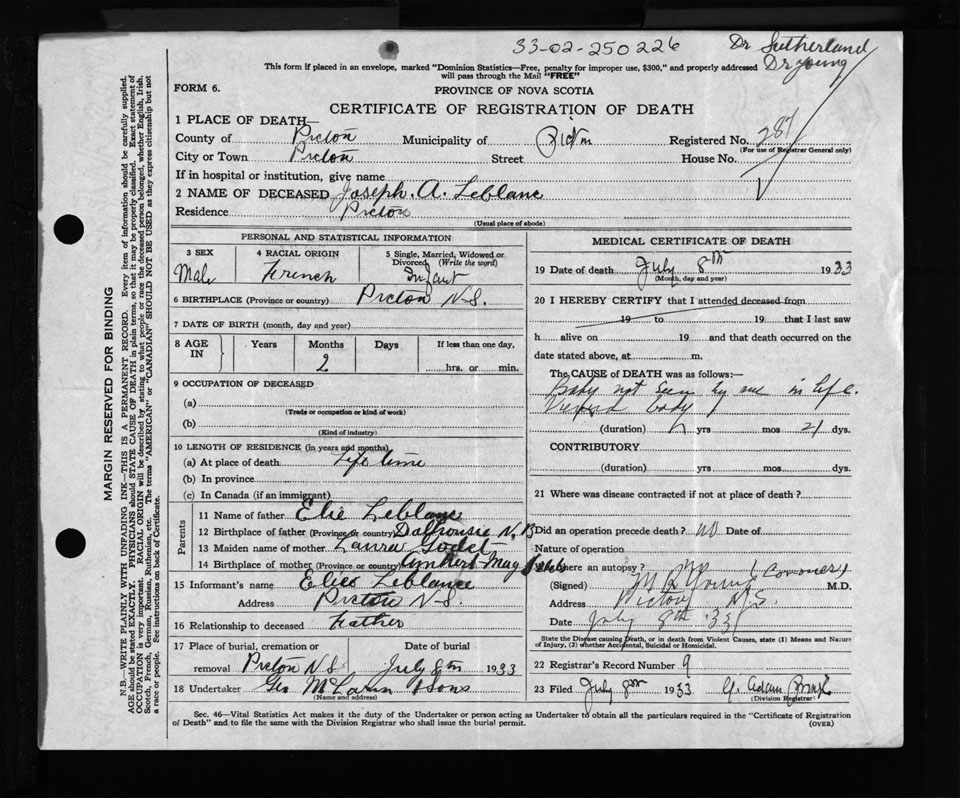 33-02-250226
Dr Sutherland
Dr Young
This form if placed in an envelope, marked "Dominion Statistics—Free, penalty for improper use, $300," and properly addressed
will pass through the Mail "FREE"
FORM 6.
PROVINCE OF NOVA SCOTIA
CERTIFICATE OF REGISTRATION OF DEATH
1 PLACE OF DEATH
County of Pictou Municipality of Pictou Registered No. 287
(For use of Registrar General only)
City or Town Pictou Street House No.
If in hospital or institution, give name
2 NAME OF DECEASED Joseph. A. Leblanc
Residence Pictou
(Usual place of abode)
PERSONAL AND STATISTICAL INFORMATION
3 SEX Male
4 RACIAL ORIGIN French
5 Single, Married, Widowed or Divorced (Write the word) Infant
6 BIRTHPLACE (Province or country) Pictou N.S.
7 DATE OF BIRTH (month, day and year)
8 AGE IN Years Months 2 Days If less than one day, hrs. or min.
9 OCCUPATION OF DECEASED
(a)
(Trade or occupation or kind of work)
(b)
(Kind of industry)
10 LENGTH OF RESIDENCE (in years and months)
(a) At place of death Life time
(b) In province
(c) In Canada (if an immigrant)
Parents
11 Name of father Elie Leblanc
12 Birthplace of father (Province or country) Dalhousie N.B
13 Maiden name of mother Laura Godet
14 Birthplace of mother (Province or country) Amherst Mag
15 Informant's name Leblance
Address Pictou N.S.
16 Relationship to deceased Father
17 Place of burial, cremation or removal Pictou N.S. Date of burial July 8th 1933
18 Undertaker Geo McLaren & Sons
(Name and address)
MEDICAL CERTIFICATE OF DEATH
19 Date of death July 8th 1933
(Month, day and year)
20 I HEREBY CERTIFY that I attended deceased from
19 to 19 that I last saw
h alive on 19 and that death occurred on the
date stated above, at m.
The CAUSE of DEATH was as follows:—
Baby not seen by me in life.
Viewed body
(duration) yrs mos 21 dys.
CONTRIBUTORY
(duration) yrs mos dys.
21 Where was disease contracted if not at place of death?
Did an operation precede death? no Date of
Nature of operation
Was there an autopsy? no
(Signed) M R Young (Coroner) M.D.
Address Pictou N.S.
Date July 8th 33
State the Disease causing Death, or in death from Violent Causes, state (1) Means and Nature
of Injury, (2) whether Accidental, Suicidal or Homicidal.
22 Registrar's Record Number 9
23 Filed July 8th 1933 Adam
(Division Registrar)
Sec. 46—Vital Statistics Act makes it the duty of the Undertaker or person acting as Undertaker to obtain all the particulars required in the "Certificate of Registration
of Death" and to file the same with the Division Registrar who shall issue the burial permit.
(OVER)
MARGIN RESERVED FOR BINDING
N.B.—WRITE PLAINLY WITH UNFADING INK—THIS IS A PERMANENT RECORD. Every item of information should be carefully supplied.
AGE should be stated EXACTLY. PHYSICIANS should STATE CAUSE OF DEATH in plain terms, so that it may be properly classified. Exact statement of
OCCUPATION is very important. RACIAL ORIGIN will be described by stating to what people or race the deceased person belonged, whether English, Irish,
Scotch, French, German, Russian, Ruthenian, etc. The terms "AMERICAN" or "CANADIAN" SHOULD NOT BE USED as they express citizenship but not
a race or people. See instructions on back of Certificate.